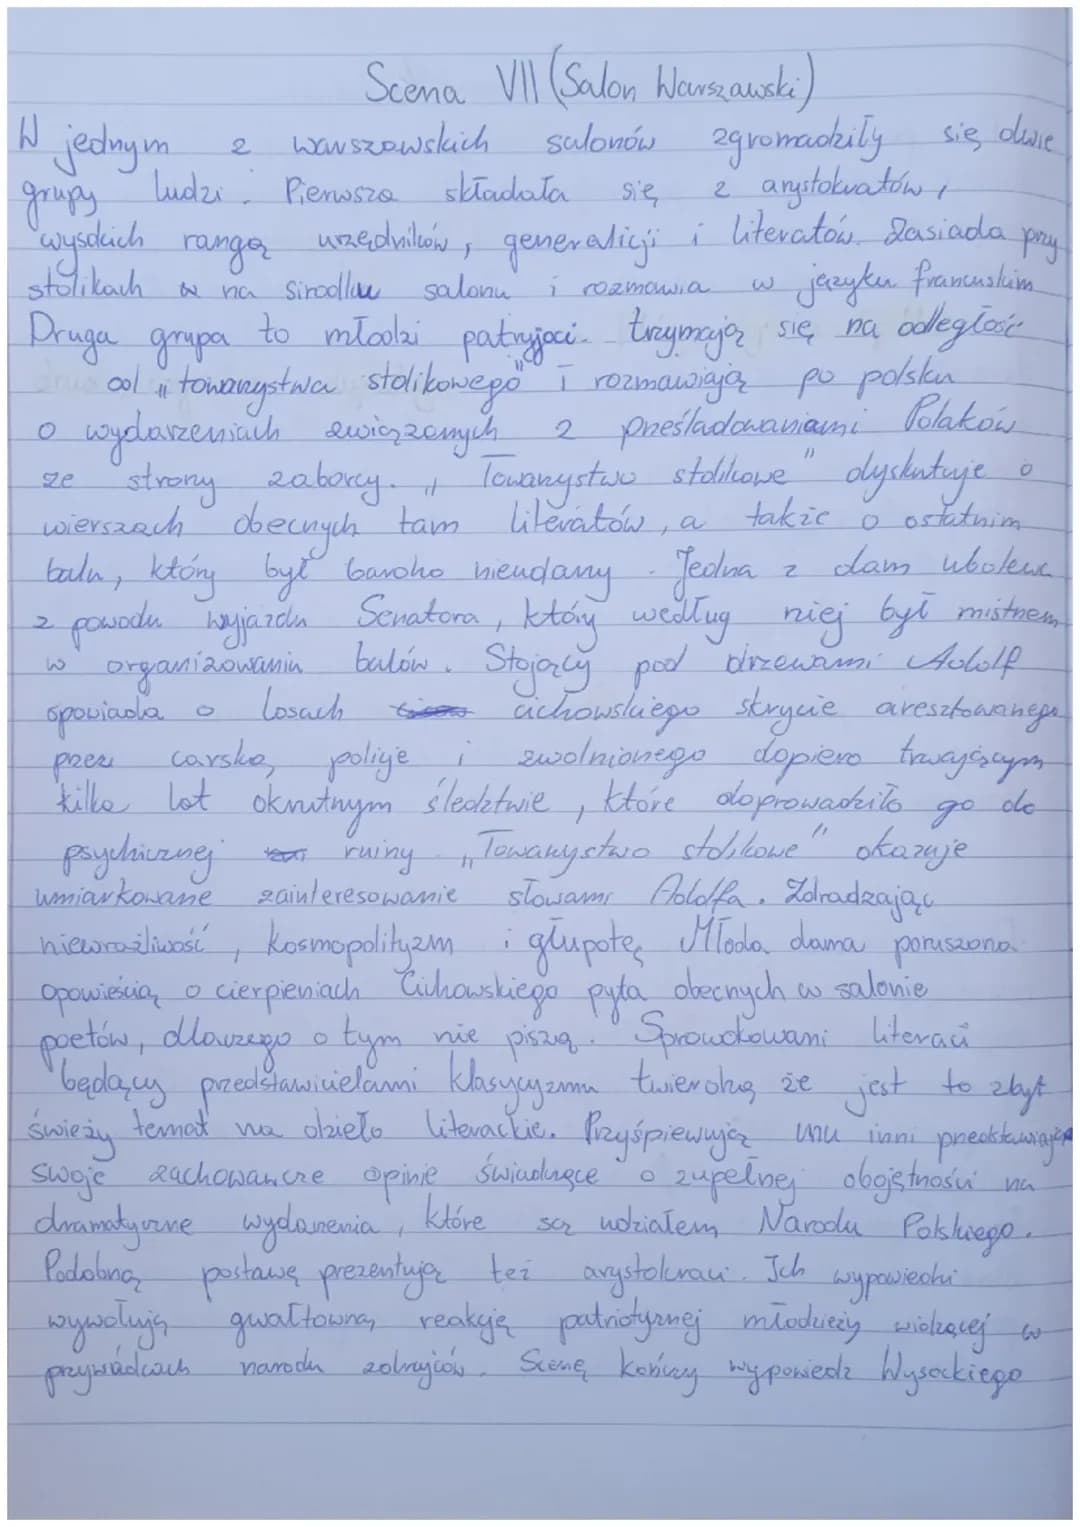 Scena VII (Salon Warszawski)
W jednym z warszawskich salonów zgromadziły się dwie
grupy ludzi. Pierwsza składała się z arystokratów,
wysokich rangą urzędników, generalicji i literatów. Zasiada przy
stolikach na środku salonu i rozmawia w języku francuskim
Druga grupa to młodzi patryjoci. trzymają się na odległość
od „towarzystwa stolikowego" i rozmawiają po polsku
o wydarzeniach związanych z prześladowaniami Polaków
ze strony zaborcy. „Towarzystwo stolikowe" dyskutuje o
wierszach obecnych tam literatów, a także o ostatnim
balu, który był bardzo nieudany. Jedna z dam ubolewa
z powodu wyjazdu Senatora, który według niej był mistrzem
w organizowaniu balów. Stojący pod drzewami Adolf
opowiada o losach cichowskiego skrycie aresztowanego
przez carską policje i zwolnionego dopiero trwającym
kilka lat okrutnym śledztwie, które doprowadziło go do
psychicznej ruiny. „Towarzystwo stolikowe" okazuje
umiarkowane zainteresowanie słowami Adolfa. Zdradzając
niewrażliwość, kosmopolityzm i głupotę. Młoda dama poruszona
opowieścią o cierpieniach Cichowskiego pyta obecnych w salonie
poetów, dlaczego o tym nie piszą. Sprowokowani literaci
będący przedstawicielami klasycyzmu twierdzą że jest to zbyt
świeży temat na dzieło literackie. Przyśpiewują mu inni przedstawiając
swoje zachowawcze opinie świadczące o zupełnej obojętności na
dramatyczne wydarzenia, które są udziałem Narodu Polskiego.
Podobną postawę prezentują też arystokraci. Ich wypowiedzi
wywołują gwałtowną reakcję patriotycznej młodzieży widzącej w
przywódcach narodu zdrajców. Scenę kończy wypowiedź Wysockiego